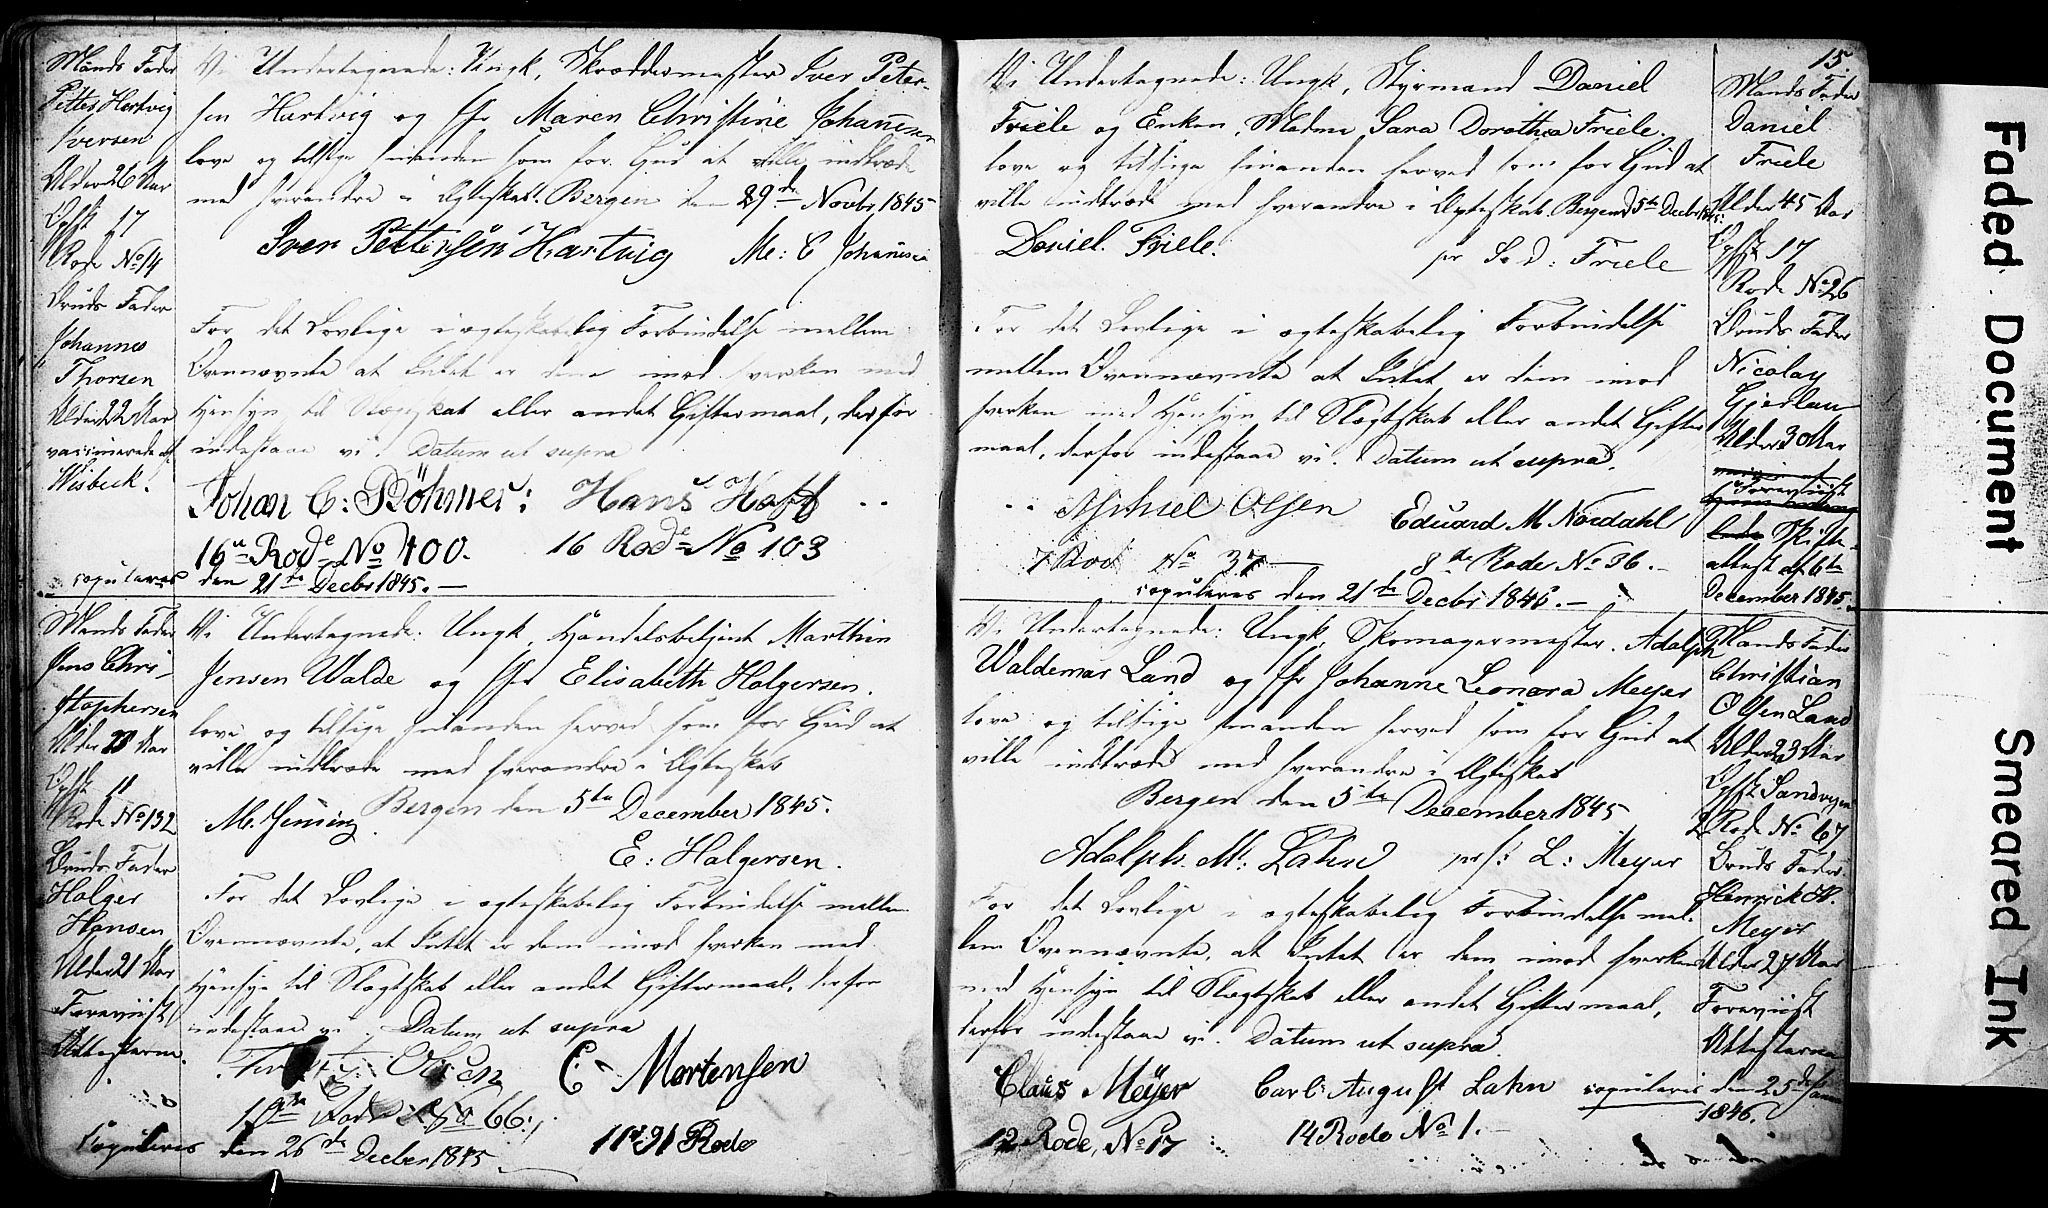 Mands Fader
Petter Hartvig
Iversen
Alder 26 Aar
Opst 17
Rode No 14
Bruds Fader
Johannes
Thorsen
Alder 22 Aar
vaccinerede af
Wisbeck.
Vi Undertegnede: Ungk, Skræddermester Iver Peter-
sen Hartvig og Jfr Maren Christine Johannesen
love og tilsige hinanden som for Gud at ville indtræde
med hverandre i Ægteskab. Bergen den 29de Novbr 1845
Iver Pettersen Hartvig M: C Johannesen
For det Lovlige i ægteskabelig Forbindelse mellem
Ovennævnte at Intet er dem imod hverken med
Hensyn til Slægtskab eller andet Giftermaal, derfor
indestaae vi. Datum ut supra
Johan C: Böhmer: Hans Hoff
16de Rode No 400. 16 Rode No 103
copuleres den 21de Decbr 1845.
Mands Fader
Jens Chri-
stophersen
Alder 28 Aar
Opst 11
Rode No 132
Bruds Fader
Holger
Hansen
Alder 21 Aar
Foreviist
Attesterne.
Vi Undertegnede: Ungk, Handelsbetjent Marthin
Jensen Walde og Jfr Elisabeth Holgersen.
love og tilsige hinanden herved som for Gud at
ville indtræde med hverandre i Ægteskab
Bergen den 5te December 1845.
M. Jensen
E: Holgersen.
For det Lovlige i ægteskabelig Forbindelse mellem
Ovennævnte, at Intet er dem imod hverken med
Hensyn til Slægtskab eller andet Giftermaal, derfor
indestaae vi. Datum ut supra
Olsen C Mortensen
10de Rode No 66. 11te 21 Rode
Copuleres den 26de Decbr 1845
15
Vi Undertegnede: Ungk, Styrmand Daniel
Friele og Enken, Madme Sara Dorothea Friele.
love og tilsige hinanden herved som for Gud at
ville indtræde med hverandre i Ægteskab. Bergen d 5te Decbr 1845.
Daniel Friele. pr S. d: Friele
For det Lovlige i ægteskabelig Forbindelse
mellem Ovennævnte at Intet er dem imod
hverken med Hensyn til Slægtskab eller andet Gifter
maal, derfor indestaae vi. Datum ut supra.
Michael Olsen Eduard M Nordahl
7 Rod No 37 8de Rode No 36.
copuleres den 21de Decbr 1845.
Mands Fader
Daniel
Friele
Alder 45 Aar
Opst 17
Rode No 26
Bruds Fader
Nicolay
Gjerlau
Alder 30 Aar
Foreviist
Skifte-
attest af 6te
December 1845.
Vi Undertegnede: Ungk, Skomagermester, Adolph
Waldemar Land og Jfr Johanne Leonora Meyer
love og tilsige hinanden herved som for Gud at
ville indtræde med hverandre i Ægteskab
Bergen den 5te December 1845
Adolph. W: Lahn prs: L: Meyer
For det Lovlige i ægteskabelig Forbindelse mel-
lem Ovennævnte, at Intet er dem imod hverken
med Hensyn til Slægtskab eller andet Giftermaal,
derfor indestaae vi. Datum ut supra.
Claus Meyer Carl August Lahn
12 Rode, No 17 14 Rode No 1.
copuleres den 25de Janu
1846.
Mands Fader
Christian
Olsen Land
Alder 23 Aar
Opst Sandvigen
2 Rode No 67
Bruds Fader
Henrick H.
Meyer
Alder 27 Aar
Foreviist
Attesterne
Faded Document
Smeared Ink